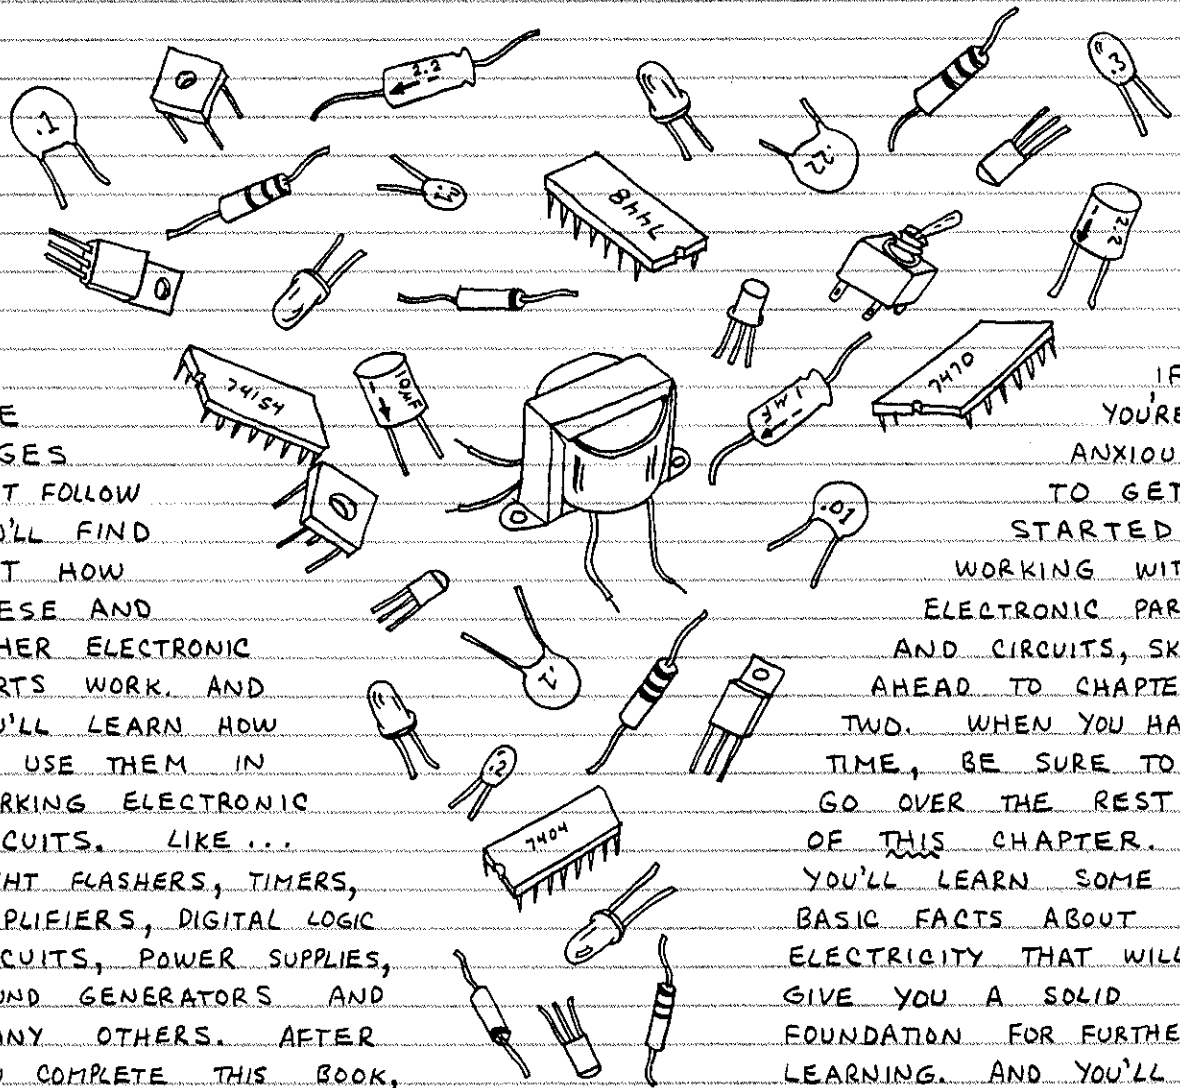 .1
2.2
.3
.22
7448
2.2
74154
10µF
1µF
7470
.01
.1
.2
7404
E
GES
T FOLLOW
U'LL FIND
T HOW
ESE AND
HER ELECTRONIC
RTS WORK. AND
U'LL LEARN HOW
USE THEM IN
RKING ELECTRONIC
CUITS. LIKE ...
HT FLASHERS, TIMERS,
PLIFIERS, DIGITAL LOGIC
CUITS, POWER SUPPLIES,
UND GENERATORS AND
ANY OTHERS. AFTER
U COMPLETE THIS BOOK,
IF
YOU'RE
ANXIOU
TO GET
STARTED
WORKING WIT
ELECTRONIC PAR
AND CIRCUITS, SK
AHEAD TO CHAPTE
TWO. WHEN YOU HA
TIME, BE SURE TO
GO OVER THE REST
OF THIS CHAPTER.
YOU'LL LEARN SOME
BASIC FACTS ABOUT
ELECTRICITY THAT WILL
GIVE YOU A SOLID
FOUNDATION FOR FURTHE
LEARNING. AND YOU'LL